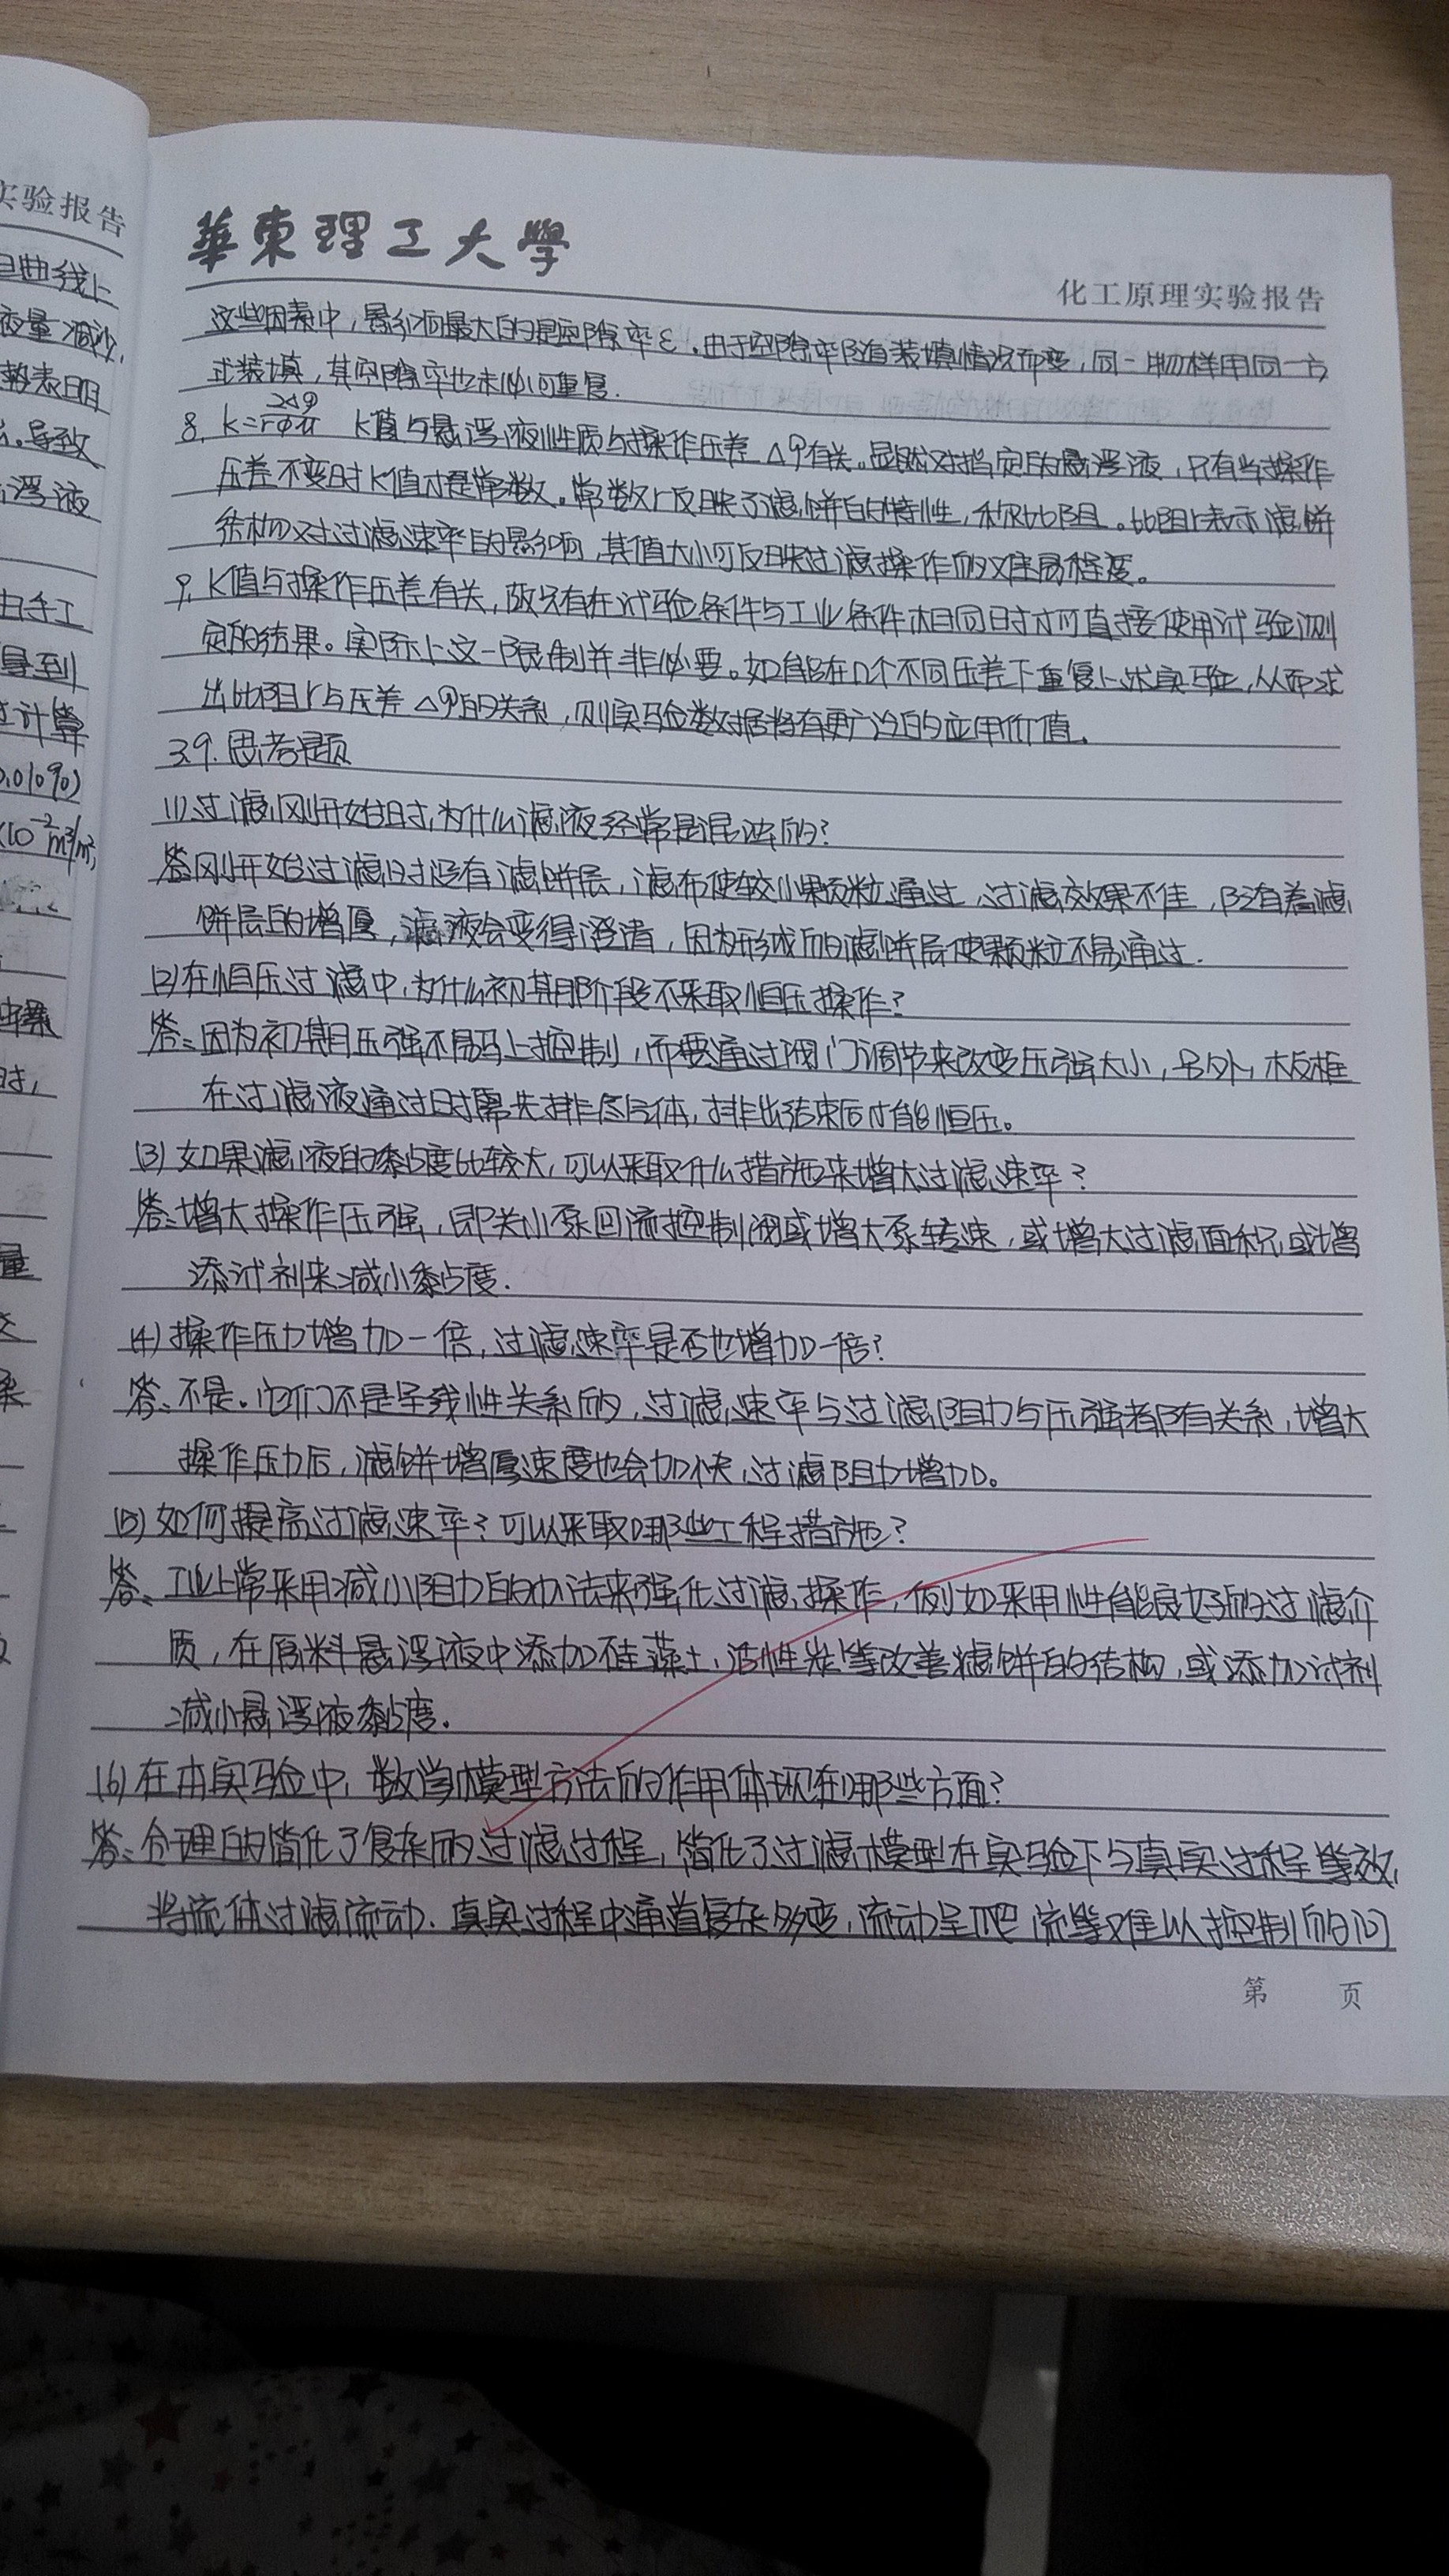 实验报告
華東理工大學
化工原理实验报告
这些因素中，影响最大的是空隙率ε．由于空隙率随着装填情况而变，同一物样用同一方
式装填，其空隙率也未必可重复．
8. K=2Δ𝒫/rφμ K值与悬浮液性质与操作压差Δ𝒫有关。显然对指定的悬浮液，只有当操作
压差不变时K值才是常数。常数r反映了滤饼的特性，称为比阻。比阻r表示滤饼
结构对过滤速率的影响，其值大小可反映过滤操作的难易程度。
9. K值与操作压差有关，故只有在试验条件与工业条件相同时才可直接使用试验测
定的结果。实际上这一限制并非必要。如能在几个不同压差下重复上述实验，从而求
出比阻r与压差Δ𝒫的关系，则实验数据将有更广泛的应用价值．
3.9. 思考题
(1) 过滤刚开始时，为什么滤液经常是混浊的？
答：刚开始过滤时没有滤饼层，滤布使较小颗粒通过，过滤效果不佳，随着滤
饼层的增厚，滤液会变得澄清，因为形成的滤饼层使颗粒不易通过．
(2) 在恒压过滤中，为什么初期阶段不采取恒压操作？
答：因为初期压强不易马上控制，而要通过阀门调节来改变压强大小，另外，板框
在过滤液通过时需先排尽气体，排出结束后才能恒压。
(3) 如果滤液的黏度比较大，可以采取什么措施来增大过滤速率？
答：增大操作压强，即关小泵回流控制阀或增大泵转速，或增大过滤面积，或增
添试剂来减小黏度．
(4) 操作压力增加一倍，过滤速率是否也增加一倍？
答：不是。它们不是呈线性关系的，过滤速率与过滤阻力与压强都有关系，增大
操作压力后，滤饼增厚速度也会加快，过滤阻力增加。
(5) 如何提高过滤速率？可以采取哪些工程措施？
答：工业上常采用减小阻力的办法来强化过滤操作，例如采用性能良好的过滤介
质，在原料悬浮液中添加硅藻土、活性炭等改善滤饼的结构，或添加试剂
减小悬浮液黏度．
(6) 在本实验中，数学模型方法的作用体现在哪些方面？
答：合理的简化了复杂的过滤过程，简化了过滤模型在实验下与真实过程等效，
将流体过滤流动．真实过程中通道复杂多变，流动呈爬流等难以控制的问
第 页